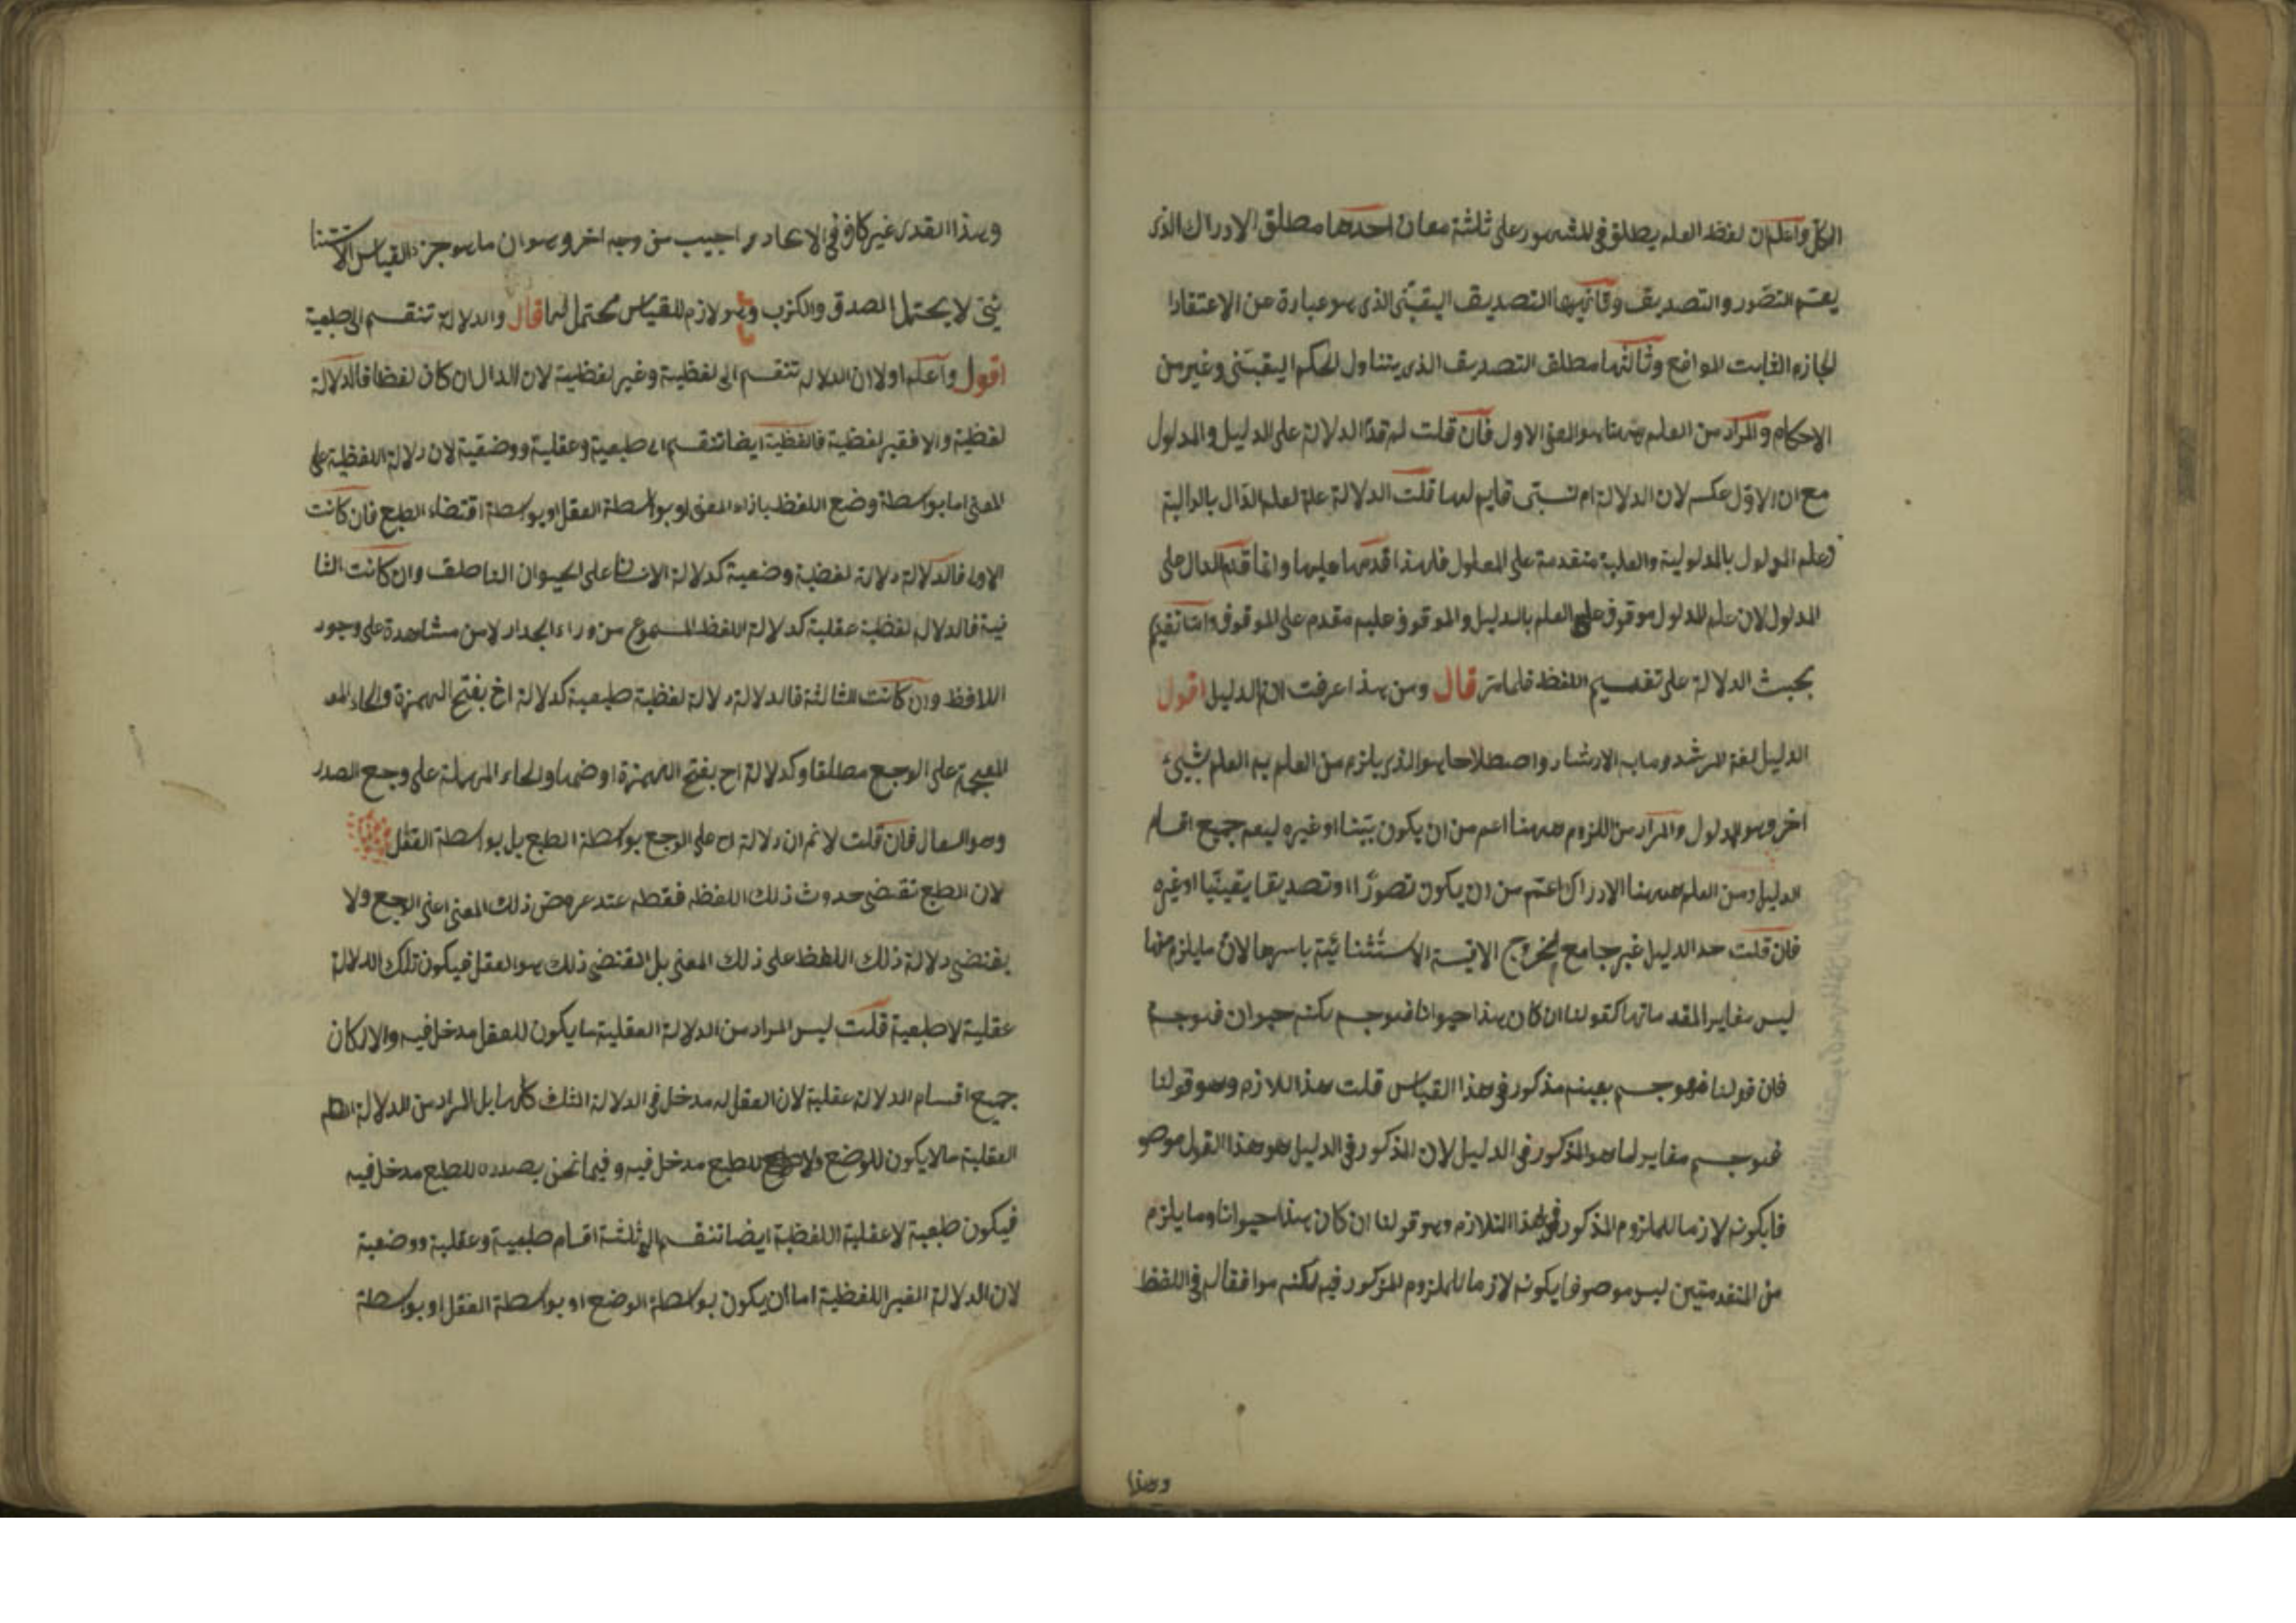 الكل واعلم ان لفظ العلم يطلق في المشهور على ثلثة معان احدها مطلق الادراك الذى
يعم التصور والتصديق وثانيها التصديق اليقينى الذى هو عبارة عن الاعتقاد ا
لجازم الثابت الموافع وثالثها مطلق التصديق الذى يتناول الحكم اليقينى وغيره من
الاحكام والمراد من العلم ههنا هو المعنى الاول فان قلت لم قدم الدلالة على الدليل والمدلول
مع ان الاولى عكسه لان الدلالة امر نسبتى قايم لهما قلت الدلالة علة لعلم الدال بالدالية
وعلم المدلول بالمدلولية والعلية متقدمة على المعلول فلهذا قدمها عليها وانما قدم الدال على
المدلول لان علم المدلول موقوف على العلم بالدليل والموقوف عليه مقدم على الموقوف واما تقديم
بحث الدلالة على تقسيم اللفظ فلما مر قال ومن هذا عرفت ان الدليل اقول
الدليل لغة المرشد وما به الارشاد واصطلاحا هو الذى يلزم من العلم به العلم بشيئ
اخر وهو المدلول والمراد من اللزوم ههنا اعم من ان يكون بيّنا او غيره ليعم جميع اقسام
الدليل ومن العلم ههنا الادراك اعم من ان يكون تصورا او تصديقا يقينيا او غيره
فان قلت حد الدليل غير جامع لخروج الاقيسة الاستثنائية باسرها لان ما يلزم منها
ليس مغاير المقدماتها كقولنا ان كان هذا حيوانا فهو جسم لكنه حيوان فهو جسم
فان قولنا فهو جسم بعينه مذكور في هذا القياس قلت هذا اللازم وهو قولنا
فهو جسم مغاير لما هو المذكور في الدليل لان المذكور في الدليل هو هذا القول موصو
فا بكونه لازما للملزوم المذكور في هذا التلازم وهو قولنا ان كان هذا حيوانا وما يلزم
من المقدمتين ليس موصوفا بكونه لازما للملزوم المذكور فيه لكنه موافقا له في اللفظ
وهذا
وهذا القدر غير كاف في الاتحاد و اجيب من وجه اخر وهو ان ما هو جزء القياس الاستثنا
ئى لا يحتمل الصدق والكذب وهو لازم للقياس محتمل لهما قال والدلالة تنقسم الى طبعية
اقول واعلم اولا ان الدلالة تنقسم الى لفظية وغير لفظية لان الدال ان كان لفظا فالدلالة
لفظية والا فغير لفظية فاللفظية ايضا تنقسم الى طبعية وعقلية ووضعية لان دلالة اللفظية على
المعنى اما بواسطة وضع اللفظ بازاء المعنى او بواسطة العقل او بواسطة اقتضاء الطبع فان كانت
الاولى فالدلالة دلالة لفظية وضعية كدلالة الانسان على الحيوان الناطق وان كانت الثا
نية فالدلالة لفظية عقلية كدلالة اللفظ المسموع من وراء الجدار لا من مشاهدة على وجود
اللافظ وان كانت الثالثة فالدلالة دلالة لفظية طبعية كدلالة اخ بفتح الهمزة والخاء المعـ
المعجمة على الوجع مطلقا وكدلالة اح بفتح الهمزة او ضمها والحاء المهملة على وجع الصدر
وهو السعال فان قلت لا نم ان دلالة اح على الوجع بواسطة الطبع بل بواسطة العقل
لان الطبع تقتضى حدوث ذلك اللفظ فقط عند عروض ذلك المعنى اعنى الوجع ولا
يقتضى دلالة ذلك اللفظ على ذلك المعنى بل المقتضى ذلك هو العقل فيكون تلك الدلالة
عقلية لا طبعية قلت ليس المراد من الدلالة العقلية ما يكون للعقل مدخل فيه والا لكان
جميع اقسام الدلالة عقلية لان العقل له مدخل في الدلالة الثلث كلها بل المراد من الدلالة
العقلية ما لا يكون للوضع ولا للطبع مدخل فيه وفيما نحن بصدده للطبع مدخل فيه
فيكون طبعية لا عقلية اللفظية ايضا تنقسم الى ثلثة اقسام طبعية وعقلية ووضعية
لان الدلالة الغير اللفظية اما ان يكون بواسطة الوضع او بواسطة العقل او بواسطة